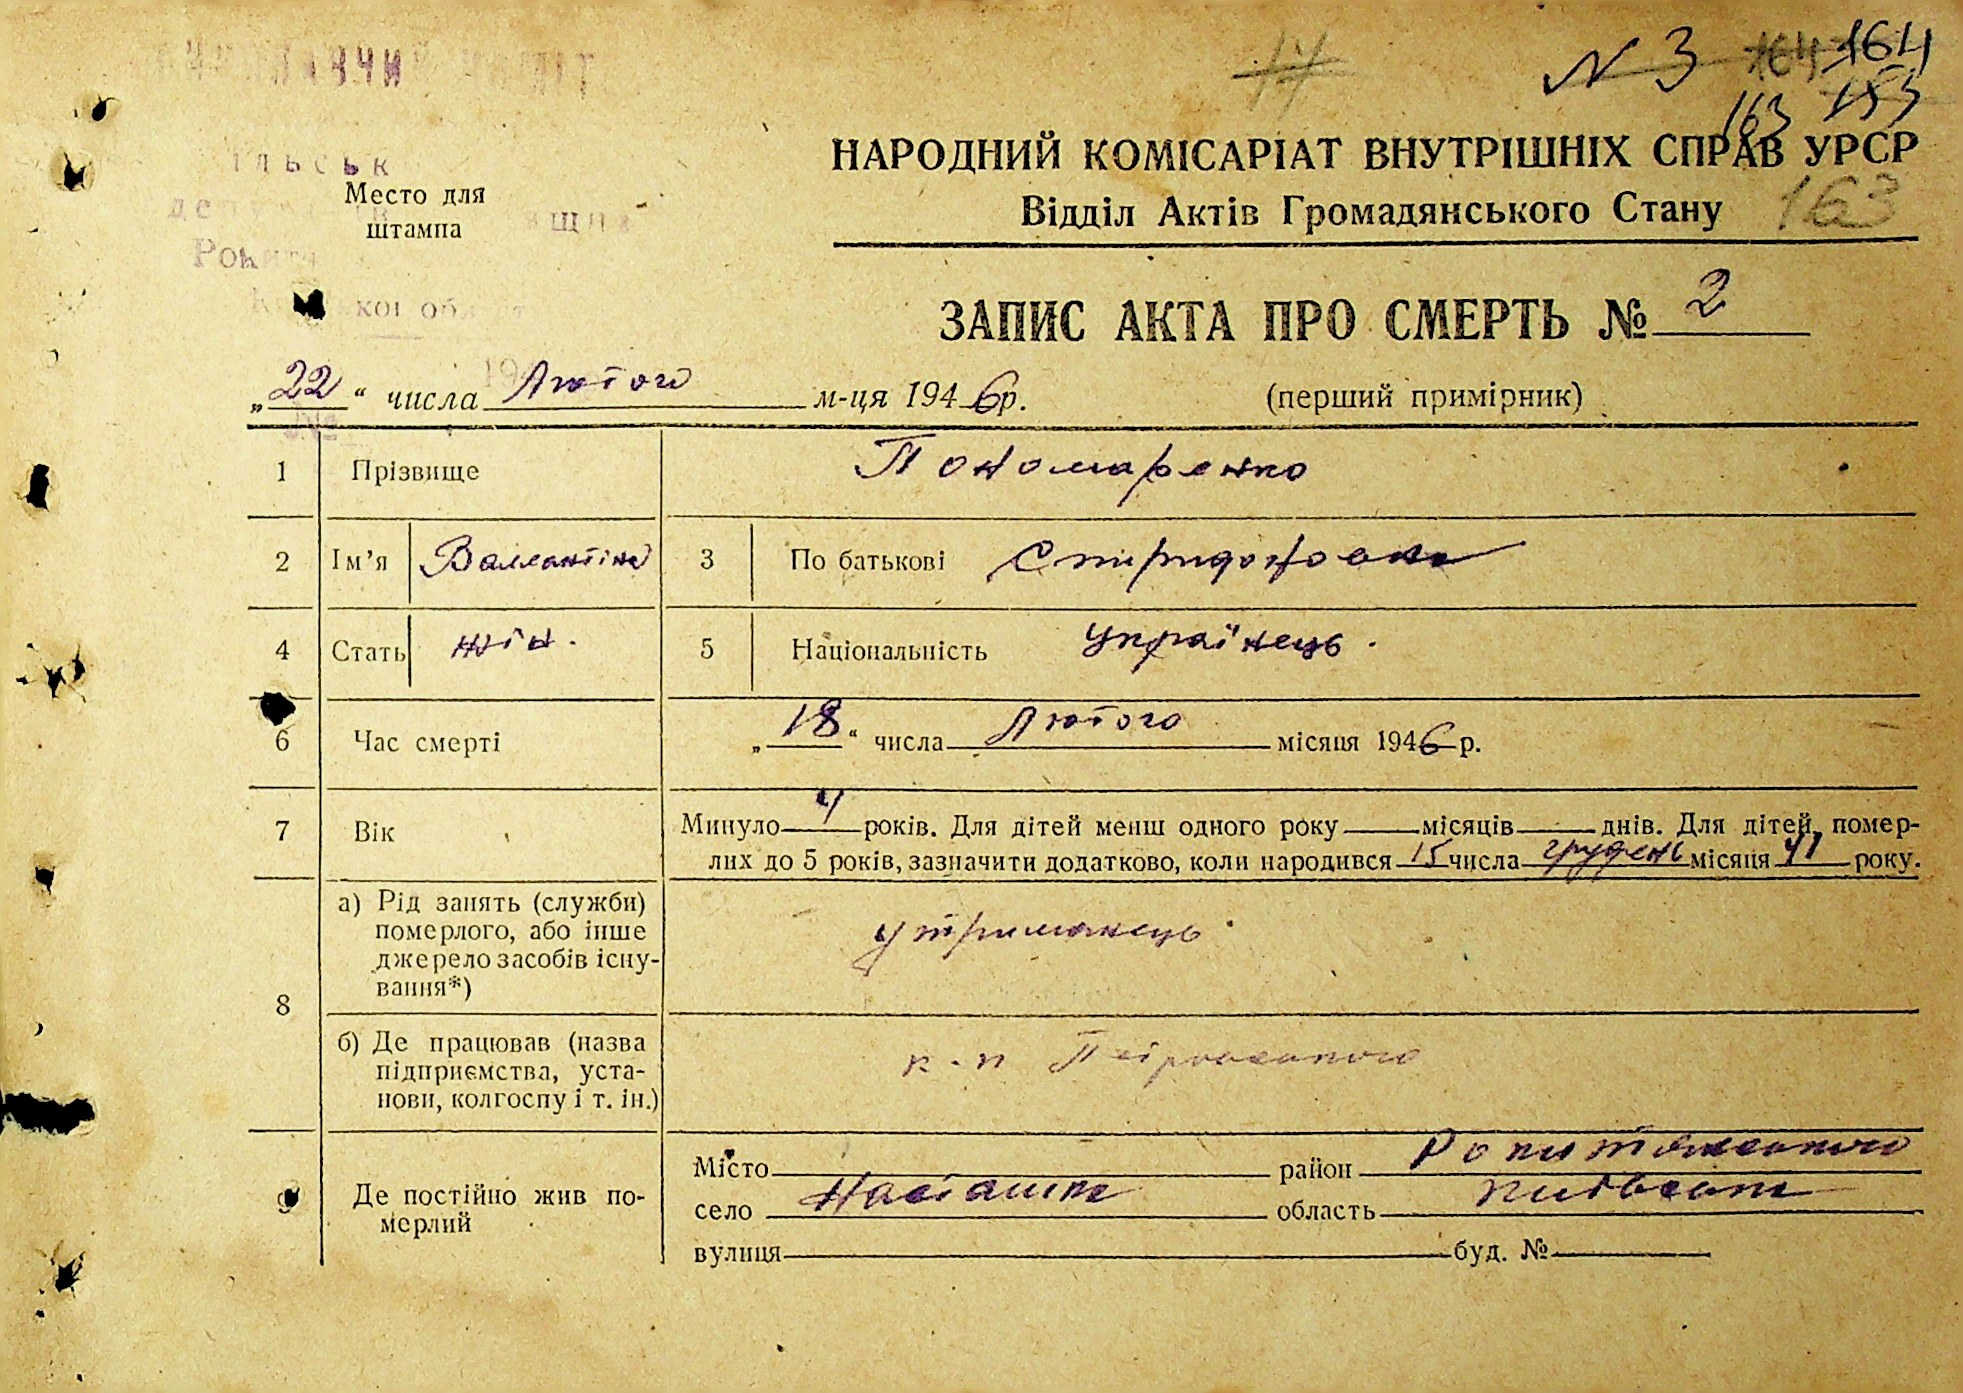 17
N 3 164 164
163 153
НАРОДНИЙ КОМІСАРІАТ ВНУТРІШНІХ СПРАВ УРСР
Место для
штампа
Відділ Актів Громадянського Стану 163
ЗАПИС АКТА ПРО СМЕРТЬ № 2
„22“ числа Лютого м-ця 1946р. (перший примірник)
1 Прізвище Пономаренко
2 Ім'я Валлантіна 3 По батькові Спиридоновна
4 Стать жін. 5 Національність Українець.
6 Час смерті „18“ числа Лютого місяця 1946 р.
7 Вік Минуло 4 років. Для дітей менш одного року місяців днів. Для дітей, помер-
лих до 5 років, зазначити додатково, коли народився 15 числа грудень місяця 41 року.
8 а) Рід занять (служби)
померлого, або інше
джерело засобів існу-
вання*)
утриманець
б) Де працював (назва
підприємства, уста-
нови, колгоспу і т. ін.)
к-п Петровського
9 Де постійно жив по-
мерлий
Місто район Рокитянського
село Насташка область Київська
вулиця буд. №